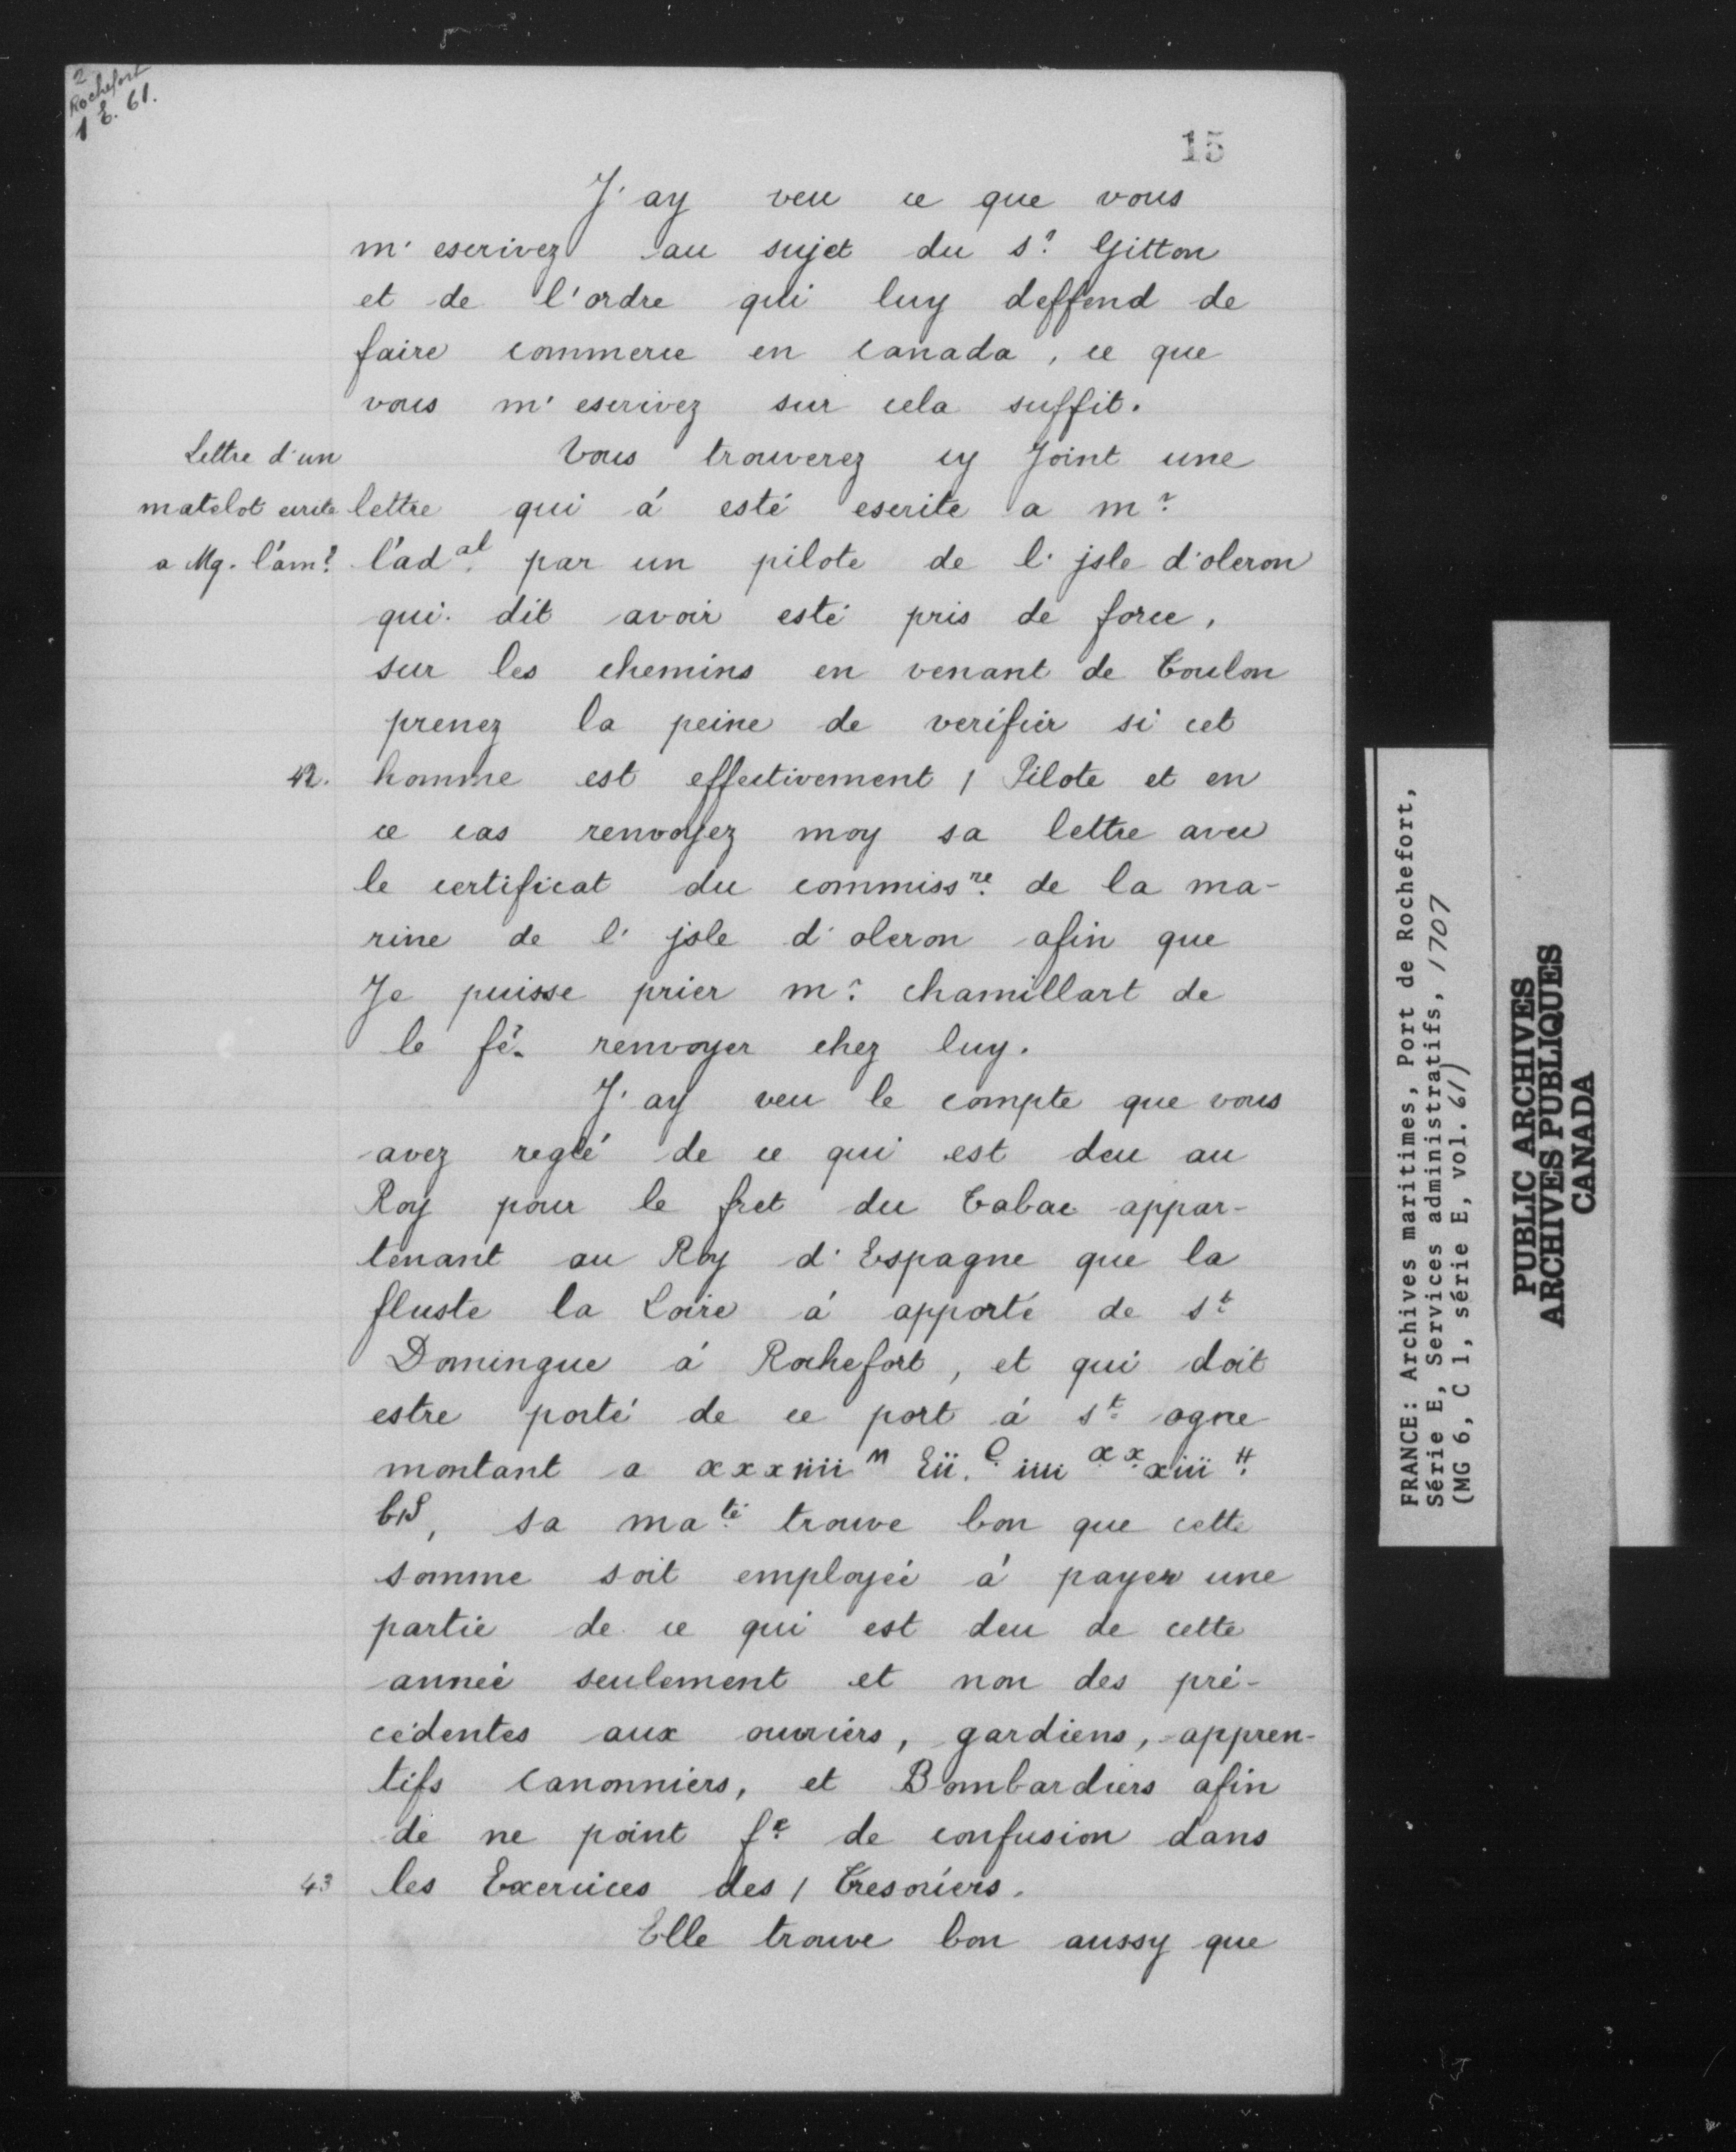 2
Rochefort
1 E. 61.
15
J'ay veu ce que vous
m'escrivez au sujet du Sr. Gitton
et de l'ordre qui luy deffend de
faire commerce en Canada, ce que
vous m'escrivez sur cela suffit.
Lettre d'un
matelot ecrite
a Mg. l'am?
Vous trouverez cy Joint une
lettre qui á esté escrite a mr.
l'ad.al par un pilote de l'jsle d'oleron
qui dit avoir esté pris de force,
sur les chemins en venant de Toulon
prenez la peine de verifier si cet
42. homme est effectivement / Pilote et en
ce cas renvoyez moy sa lettre avec
le certificat du commiss.re de la ma-
rine de l'jsle d'oleron afin que
Je puisse prier mr. chamillart de
le fe. renvoyer chez luy.
J'ay veu le compte que vous
avez reglé de ce qui est deu au
Roy pour le fret du Tabac appar-
tenant au Roy d'Espagne que la
fluste la Loire á apporté de St.
Domingue á Rochefort, et qui doit
estre porté de ce port á St. ogne
montant a xxxiiii m Eii. C. iiii xx xiii #.
sa ma.té trouve bon que cette
somme soit employée á payer une
partie de ce qui est deu de cette
année seulement et non des pré-
cédentes aux ouvriers, gardiens, appren-
tifs Canonniers, et Bombardiers afin
de ne point f.e de confusion dans
43 les Exercices des / Tresoriers.
Elle trouve bon aussy que
FRANCE: Archives maritimes, Port de Rochefort,
Série E, Services administratifs, 1707
(MG 6, C 1, série E, vol. 61)
PUBLIC ARCHIVES
ARCHIVES PUBLIQUES
CANADA